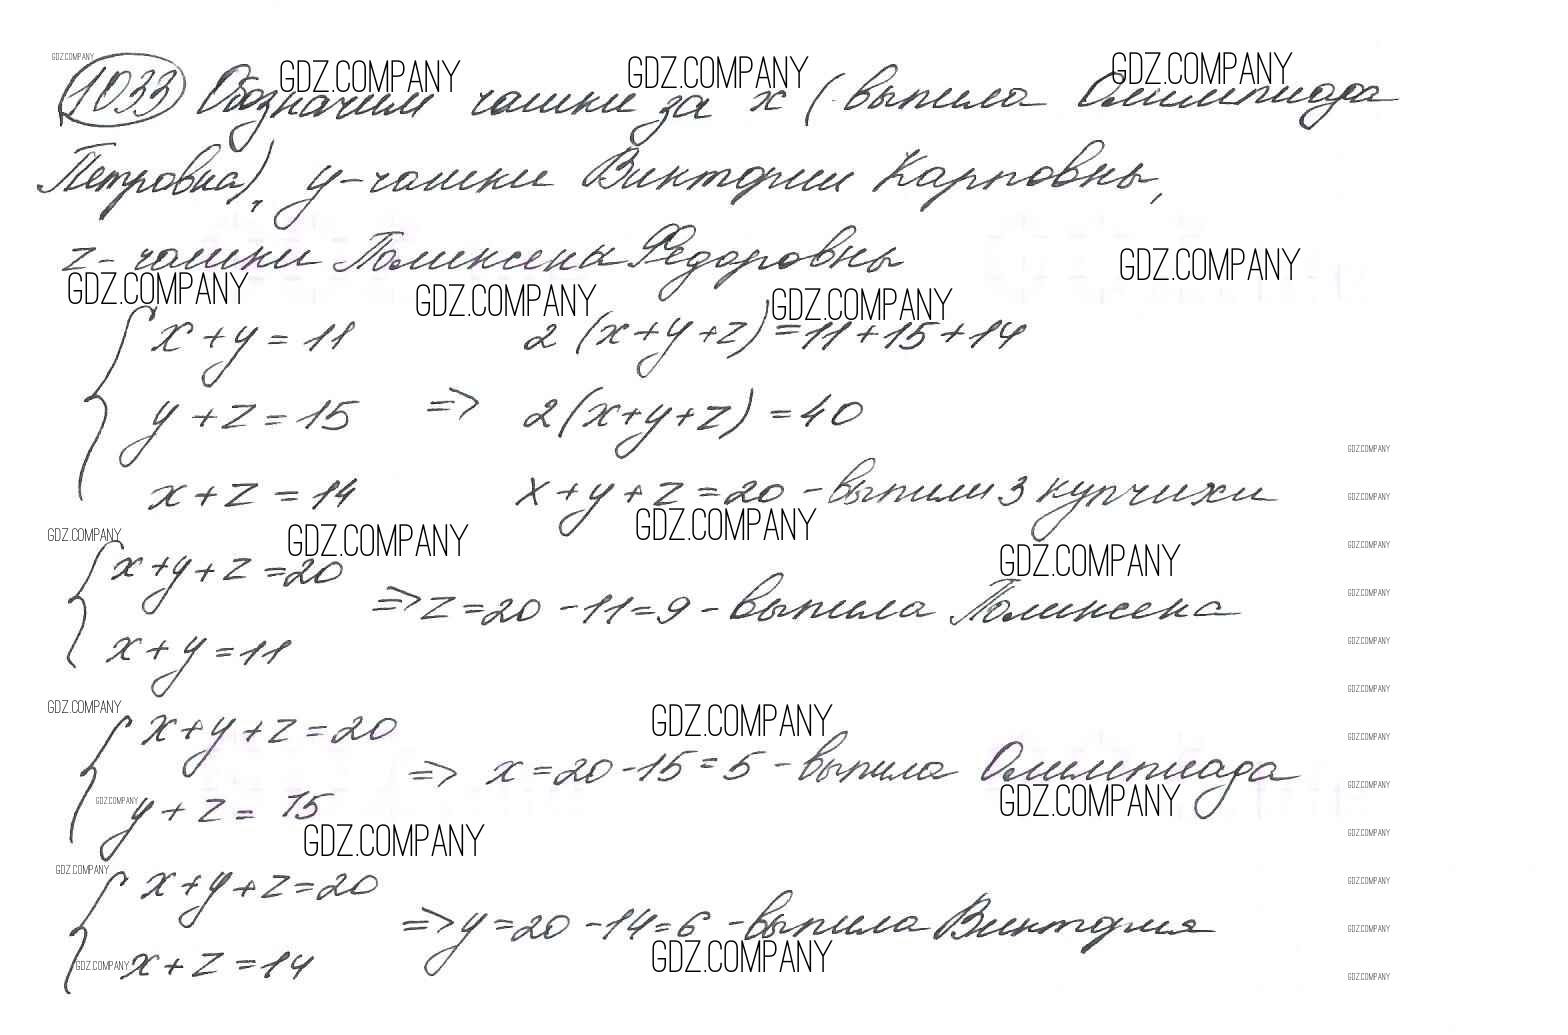 GDZ.COMPANY
1033 Обозначим чашки за x (выпила Олимпиада
GDZ.COMPANY GDZ.COMPANY GDZ.COMPANY
Петровна), y - чашки Виктории Карповны,
z - чашки Поликсены Федоровны
GDZ.COMPANY GDZ.COMPANY GDZ.COMPANY GDZ.COMPANY
x + y = 11 2 (x + y + z) = 11 + 15 + 14
y + z = 15 => 2(x + y + z) = 40
GDZ.COMPANY
x + z = 14 x + y + z = 20 - выпили 3 купчихи
GDZ.COMPANY
GDZ.COMPANY GDZ.COMPANY GDZ.COMPANY GDZ.COMPANY GDZ.COMPANY
x + y + z = 20
=> z = 20 - 11 = 9 - выпила Поликсена
GDZ.COMPANY
x + y = 11
GDZ.COMPANY
GDZ.COMPANY
GDZ.COMPANY GDZ.COMPANY
x + y + z = 20
GDZ.COMPANY
=> x = 20 - 15 = 5 - выпила Олимпиада
GDZ.COMPANY
y + z = 15
GDZ.COMPANY GDZ.COMPANY
GDZ.COMPANY GDZ.COMPANY
GDZ.COMPANY
x + y + z = 20
GDZ.COMPANY
=> y = 20 - 14 = 6 - выпила Виктория
GDZ.COMPANY
x + z = 14
GDZ.COMPANY GDZ.COMPANY
GDZ.COMPANY